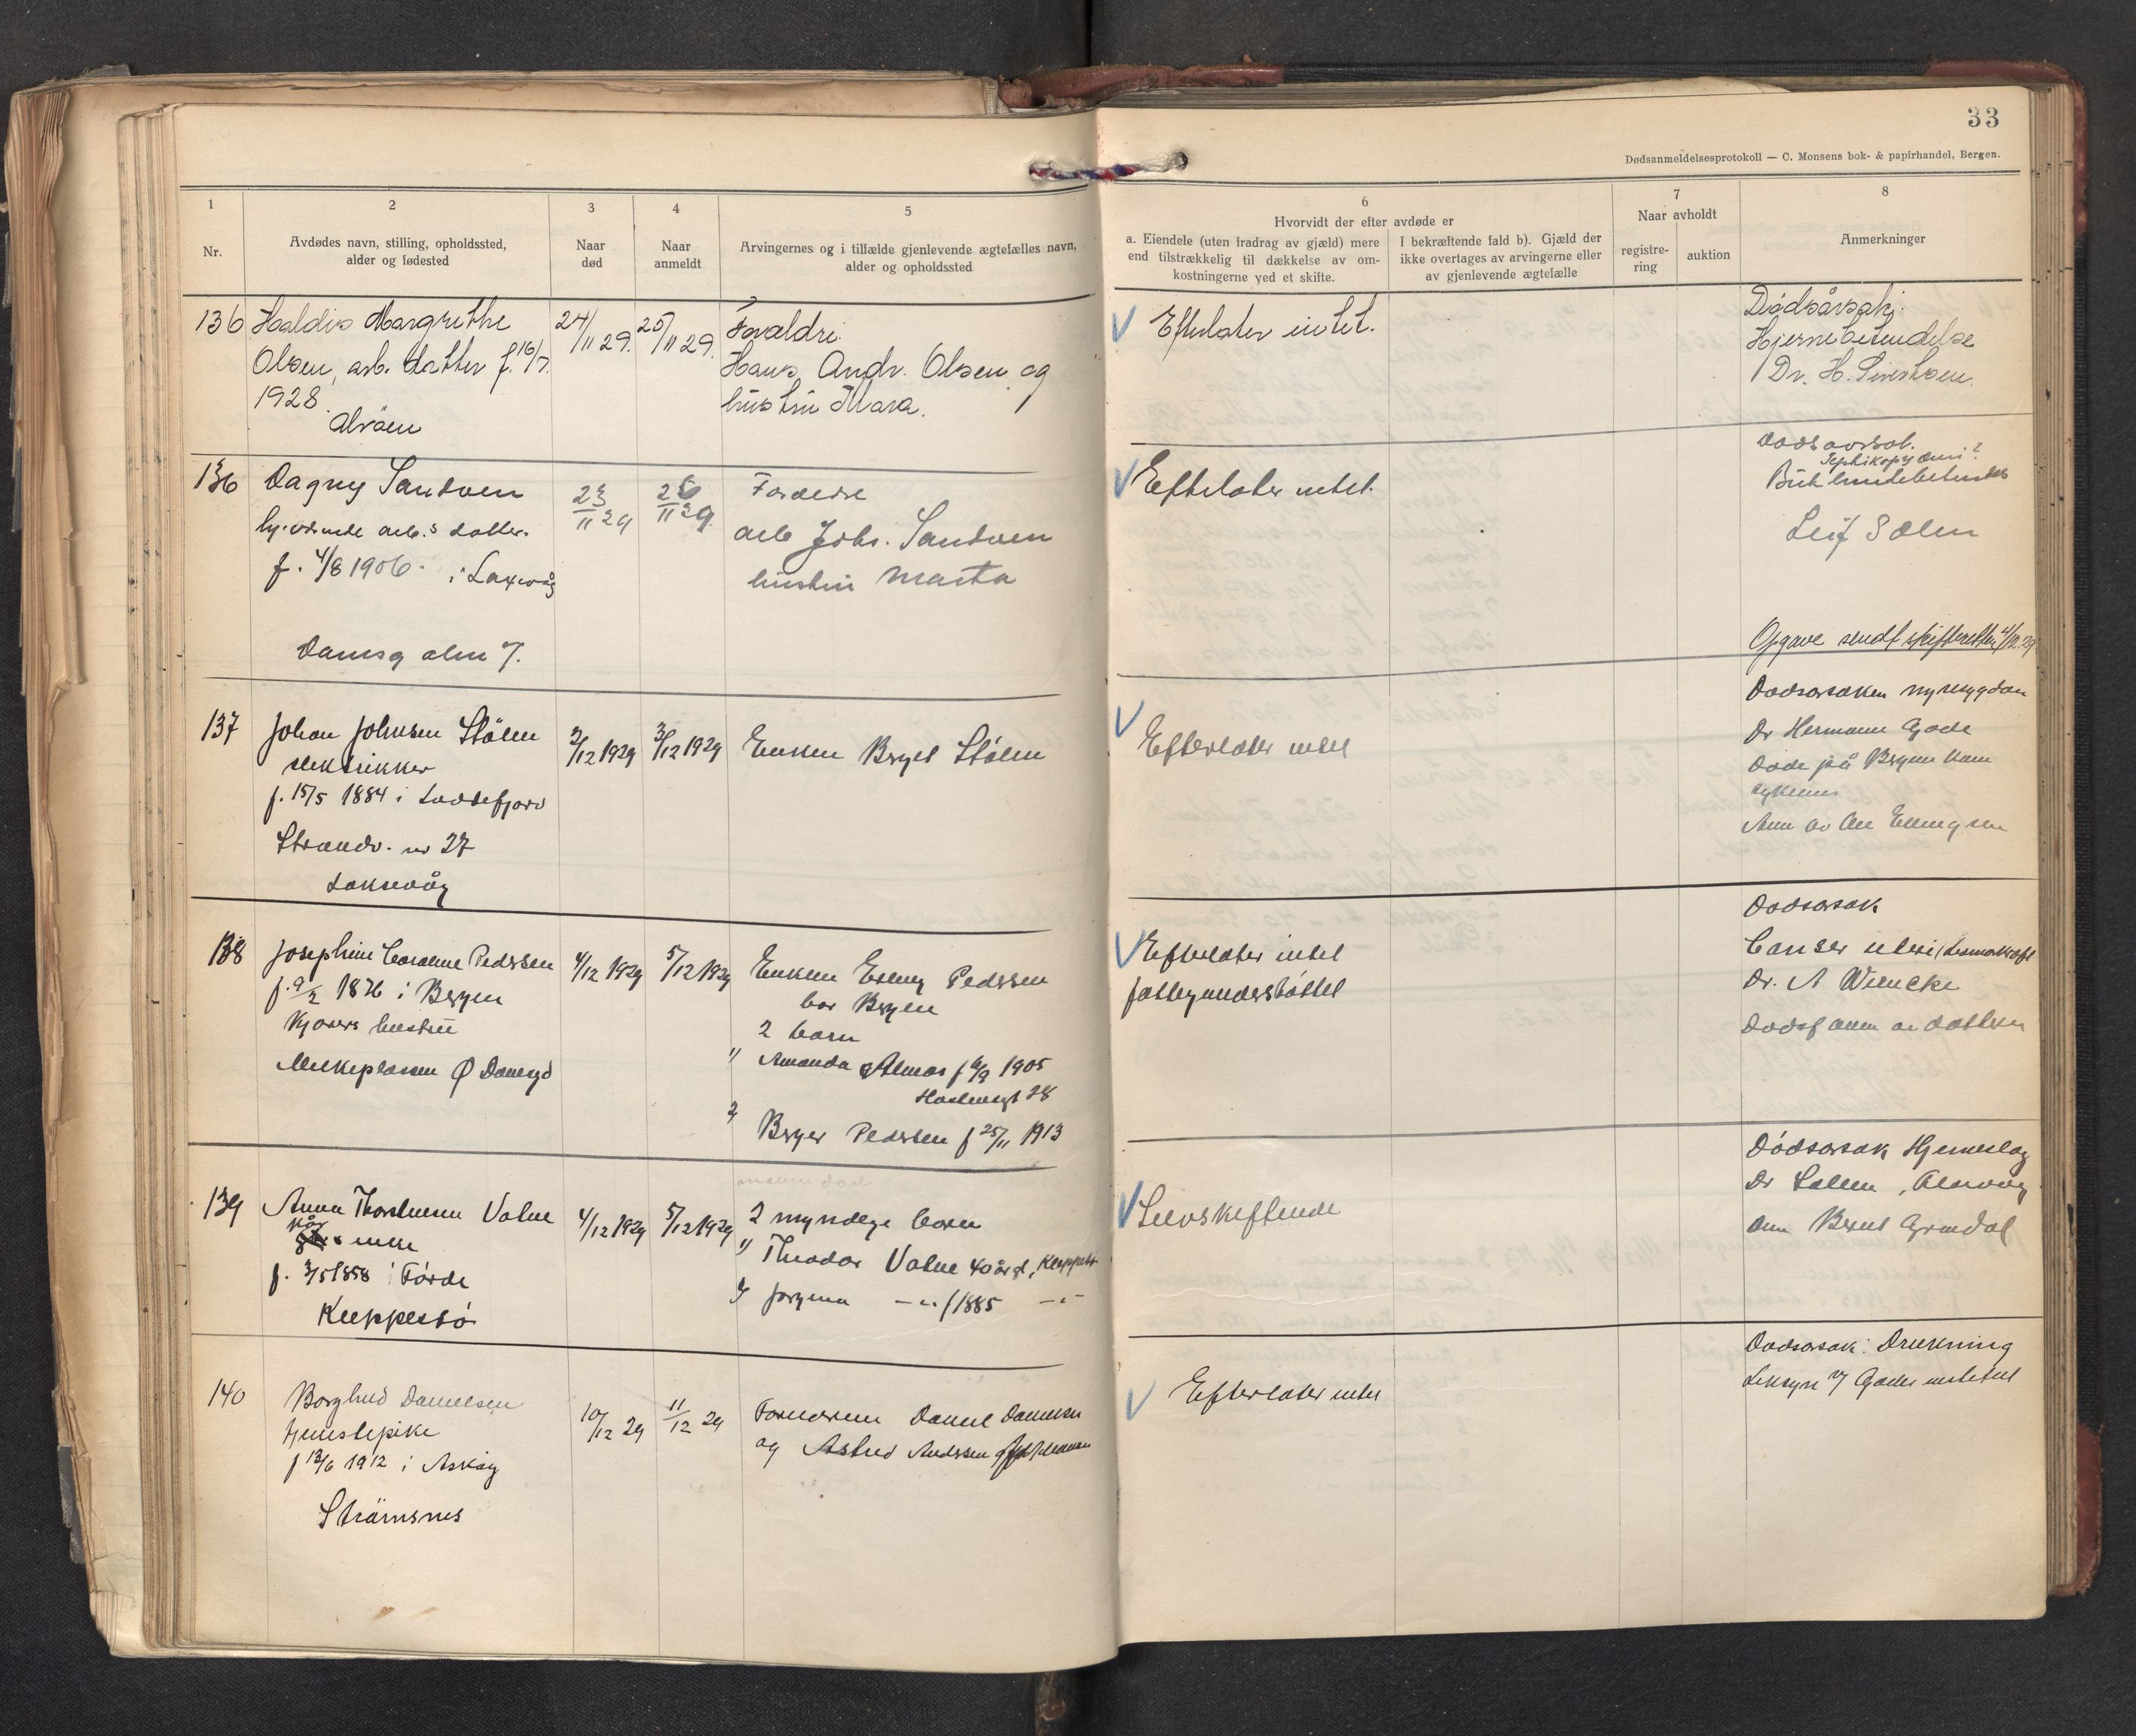 33
Dødsanmeldelsesprotokoll — C. Monsens bok- & papirhandel, Bergen.
1
Nr.
2
Avdødes navn, stilling, opholdssted,
alder og fødested
3
Naar
død
4
Naar
anmeldt
5
Arvingernes og i tilfælde gjenlevende ægtefælles navn,
alder og opholdssted
6
Hvorvidt der efter avdøde er
a. Eiendele (uten fradrag av gjæld) mere
end tilstrækkelig til dækkelse av om-
kostningerne ved et skifte.
I bekræftende fald b). Gjæld der
ikke overtages av arvingerne eller
av gjenlevende ægtefælle
7
Naar avholdt
registre-
ring
auktion
8
Anmerkninger
136
Haldis Margrethe
Olsen, arb. datter f. 16/7
1928
Alvöen
24/11 29.
25/11 29.
Foraldre:
Hans Andr. Olsen og
hustru Mara.
Efterlater intet.
Dødsårsak:
Hjernebetendelse
Dr. H. Sivertsen
136
Dagny Sandven
hj. værende arb.s datter
f. 4/8 1906 i Laxevåg
Damsg alm 7.
23/11 29
26/11 29
arb Johs. Sandven
hustru Marta
Efterlater intet.
Dødsårsak.
Leif Solem
Opgave sendt skifteretten 4/12.29
137
Johan Johnsen Stölen
elektrikker
f. 15/5 1884 i Loddefjord
Strandv. nr 27
Laksevåg
2/12 1929
3/12 1929
Enken Berget Stölen
Efterlater intet
Dødsarsaken nyresygdom
Dr Hermann Gade
Døde på Bergens kom
sykehus
Anm av Ole Ellingsen
138
Josephine Caroline Pedersen
f. 9/2 1876 i Bergen
Kjørers hustru
Melkeplassen Ø Damsgd
4/12 1929
5/12 1929
Pedersen
bor Bergen
2 barn
1/ Amanda Almås f 6/9 1905
28
2/ Berger Pedersen f 25/11 1913
Efterlater intet
fattigunderstöttet
Dødsorsak
Canser uteri (Livmorkræft)
Dr. A Wiencke
Dødsf anm av datteren
139
Anna Thorsteinsen Value
enke
f. 3/5 1858 i Förde
Kleppestö
4/12 1929
5/12 1929
2 myndige barn
1/ Theodor Value 40 år gl, Kleppestö
2/ Jorgina — " — f 1885 — " —
Selvskiftende
Dödsorsak Hjerneslag
Dr Sollem, Alvøen
Anm Bernt Grindal
140
Borghild Danielsen
tjenestepike
f 13/6 1912 i Askøy
Strömsnes
10/12 29
11/12 29
Foreldrene Daniel Danielsen
og Astrid Andersen
Efterlater intet
Dødsorsak: Drukning
Liksyn v/ Gades institut